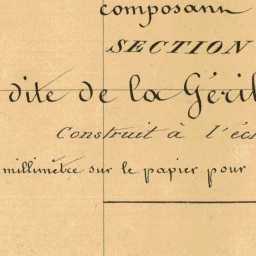 composant
SECTION
dite de la Géril
Construit à l'éc
millimètre sur le papier pour